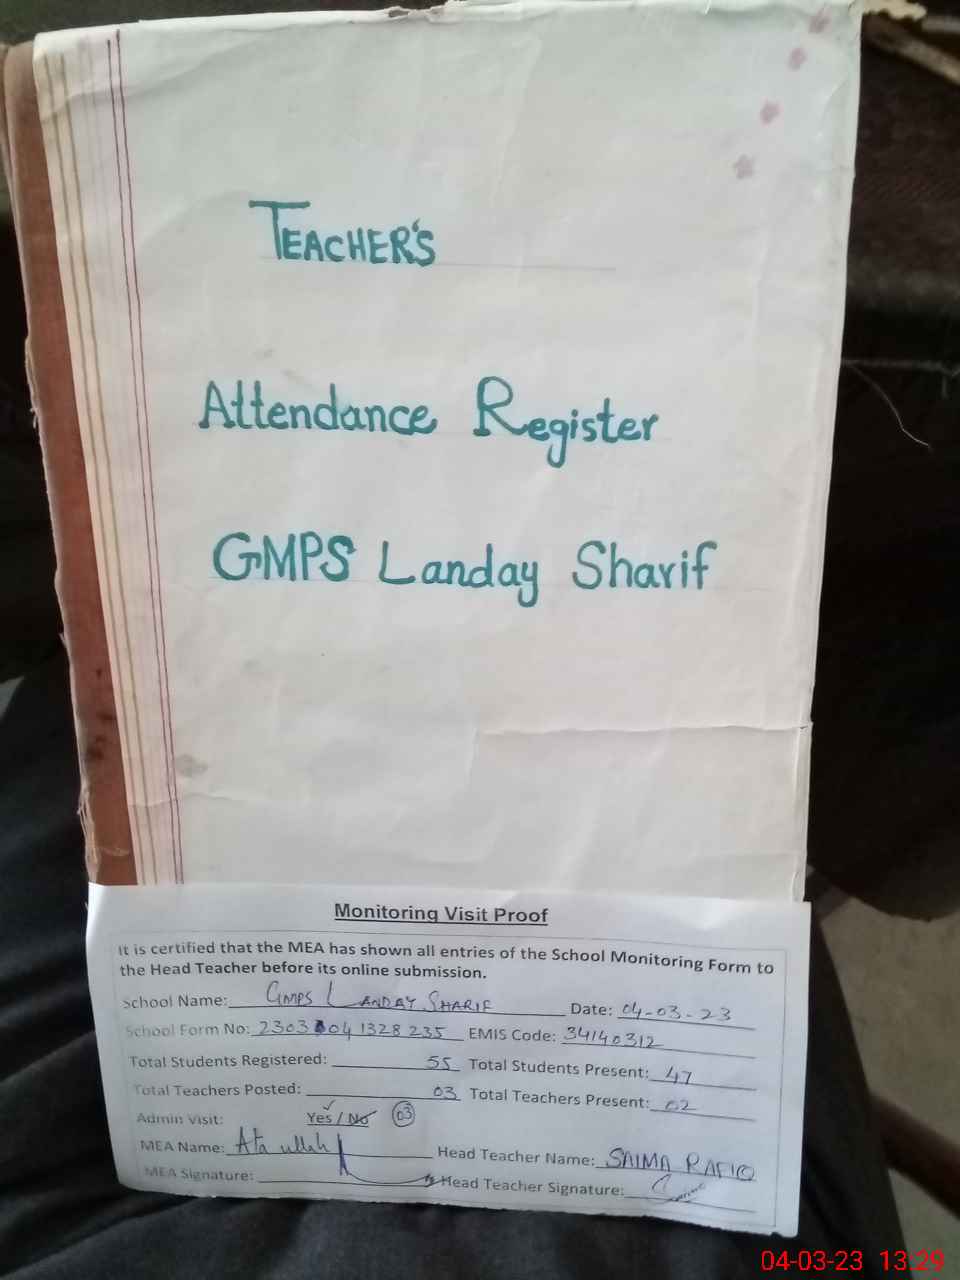 TEACHER'S
Attendance Register
GMPS Landay Sharif
Monitoring Visit Proof
It is certified that the MEA has shown all entries of the School Monitoring Form to
the Head Teacher before its online submission.
School Name: GMPS LANDAY SHARIF Date: 04-03-23
School Form No: 2303 04 1328 235 EMIS Code: 34140312
Total Students Registered: 55 Total Students Present: 47
Total Teachers Posted: 03 Total Teachers Present: 02
Admin Visit: Yes / No 03
MEA Name: Ata ullah Head Teacher Name: SAIMA RAFIQ
MEA Signature: Head Teacher Signature:
04-03-23 13:29